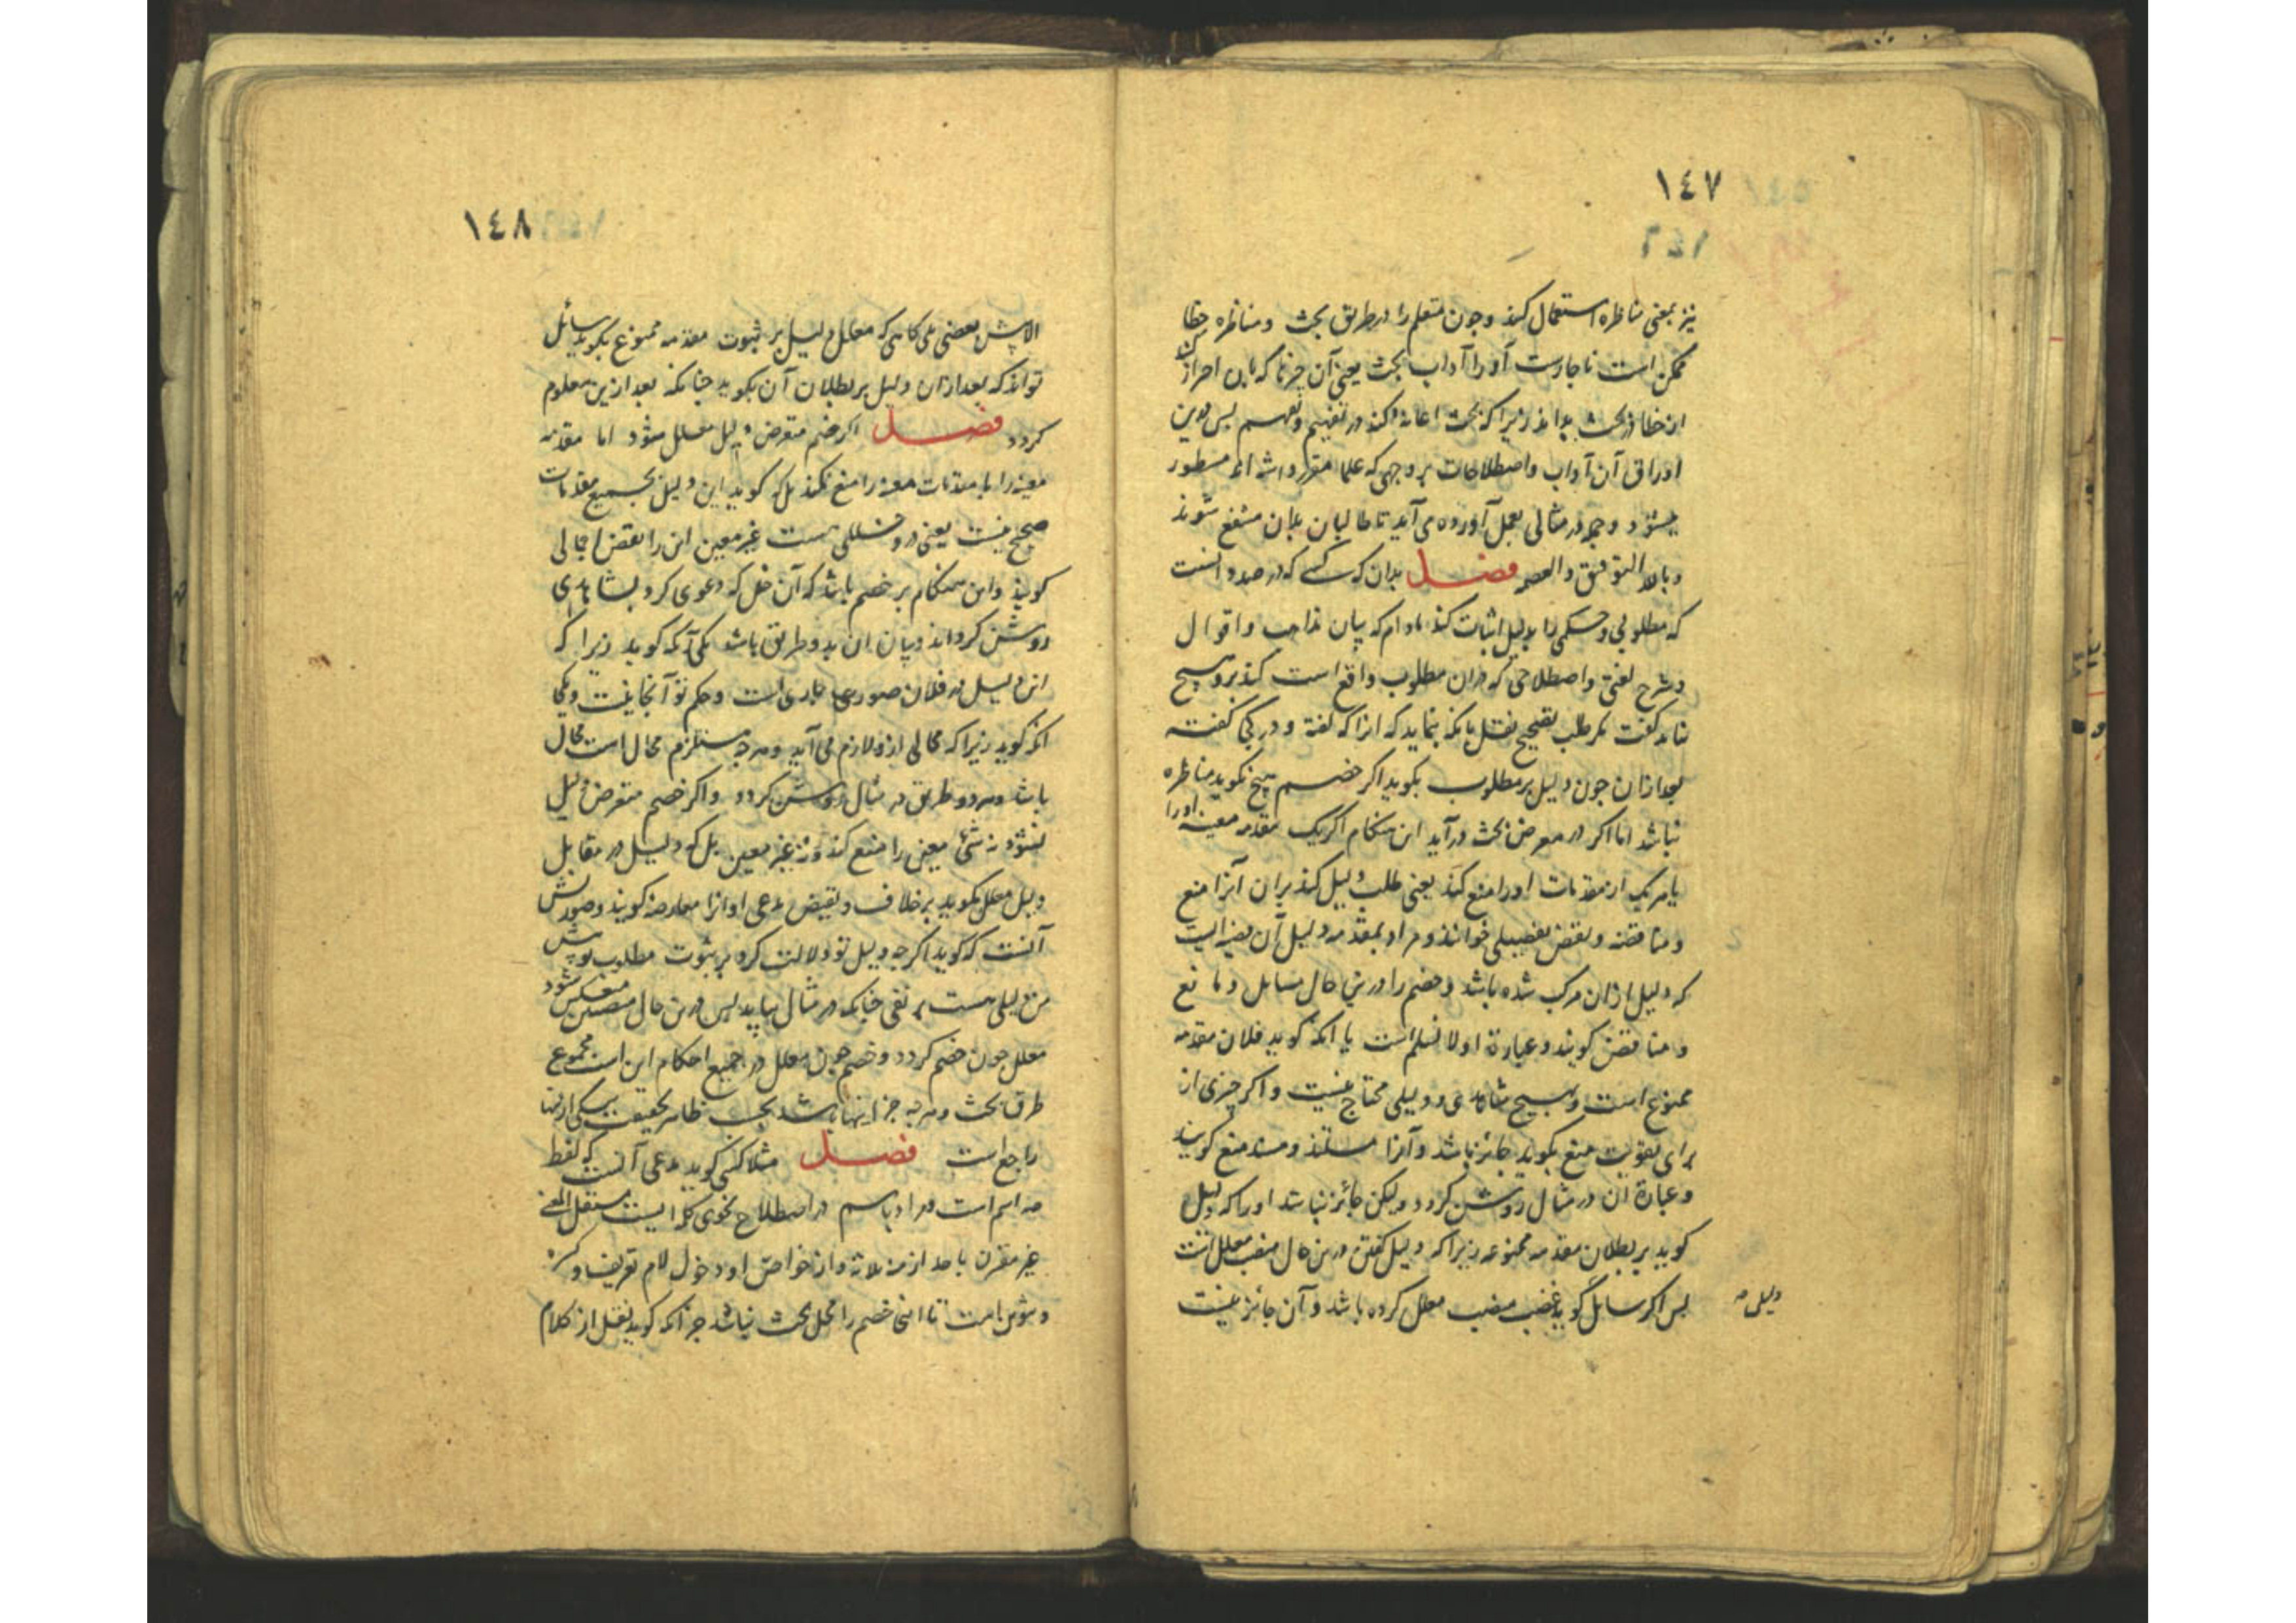 ١٤٧
نیز بمعنی مناظره استعمال کنند و چون متعلم را در طریق بحث و مناظره خطا
ممکن است ناچارست او را آداب بحث یعنی آن چیزها که بآن احتراز کند
از خطا در بحث بداند زیرا که بحث اعانه کند در تفهیم و تفهم پس درین
اوراق آن آداب و اصطلاحات بر وجهی که علما مقرر داشته‌اند مسطور
میشود و در مثالی بعمل آورده می‌آید تا طالبان بدان منتفع شوند
و بالله التوفیق و العصمه فصل بدان که کسی که در صدد آنست
که مطلوبی و حکمی را بدلیل اثبات کند مادام که بیان مذاهب و اقوال
و شرح لغتی و اصطلاحی که دران مطلوب واقع است کند برو هیچ
نتوان گفت مگر طلب تصحیح نقل بآنکه بنماید که آنرا که گفته و در کجا گفته
بعد ازان چون دلیل بر مطلوب بگوید اگر خصم هیچ نگوید مناظره
نباشد اما اگر در معرض بحث درآید این هنگام اگر یک مقدمه معینه او را
یا هر یک از مقدمات او را منع کند یعنی طلب دلیل کند بران آنرا منع
و مناقضه و نقض تفصیلی خوانند و مراد بمقدمه دلیل آن قضیه‌ایست
که دلیل ازان مرکب شده باشد و خصم را درین حال سایل و مانع
و مناقض گویند و عبارة او لا نسلم است یا آنکه گوید فلان مقدمه
ممنوع است و بهیچ شاهدی و دلیلی محتاج نیست و اگر چیزی از
برای تقویت منع بگوید جائز باشد و آنرا مستند و سند منع گویند
و عبارة آن در مثال روشن گردد ولیکن جائز نباشد او را که دلیل
گوید بر بطلان مقدمه ممنوعه زیرا که دلیل گفتن درین حال منصب معلل است
پس اگر سایل گوید غصب منصب معلل کرده باشد و آن جائز نیست
دلیلی
١٤٨
الا پیش بعضی بلی گاهی که معلل دلیل بر ثبوت مقدمه ممنوع بگوید سائل
تواند که بعد ازان دلیل بر بطلان آن بگوید چنانکه بعد ازین معلوم
گردد فصل اگر خصم متعرض دلیل معلل شود اما مقدمه
معینه را یا مقدمات معینه را منع نکند بلکه گوید این دلیل بجمیع مقدمات
صحیح نیست یعنی درو خللی هست غیر معین این را نقض اجمالی
گویند و این هنگام بر خصم باشد که آن خلل که دعوی کرد بشاهدی
روشن گرداند و بیان آن بدو طریق باشد یکی آنکه گوید زیرا که
این دلیل در فلان صورت جاری است و حکم تو آنجا نیست و یکی
آنکه گوید زیرا که محالی ازو لازم می‌آید و هر چه مستلزم محال است محال
باشد و هر دو طریق در مثال روشن گردد و اگر خصم متعرض دلیل
نشود نه شئ معین را منع کند و نه غیر معین بلکه دلیل در مقابل
دلیل معلل بگوید بر خلاف و نقیض مدعی او آنرا معارضه گویند و صورتش
آنست که گوید اگر چه دلیل تو دلالت کرد بر ثبوت مطلوب تو پیش
من دلیلی هست بر نفی چنانکه در مثال بیاید پس درین حال منعکس شود
معلل چون خصم گردد و خصم چون معلل در جمیع احکام این است مجموع
طرق بحث و هر چه جز اینها باشد بحسب ظاهر بحقیقت بیکی ازینها
راجع است فصل مثلا کسی گوید مدعی آنست که لفظ
مه اسم است و مراد باسم در اصطلاح نحوی کلمه ایست مستقل المعنی
غیر مقترن باحد ازمنه ثلاثه و از خواص او دخول لام تعریف و کسره
و تنوین است تا اینجا خصم را محل بحث نباشد جز آنکه گوید نقل از کلام